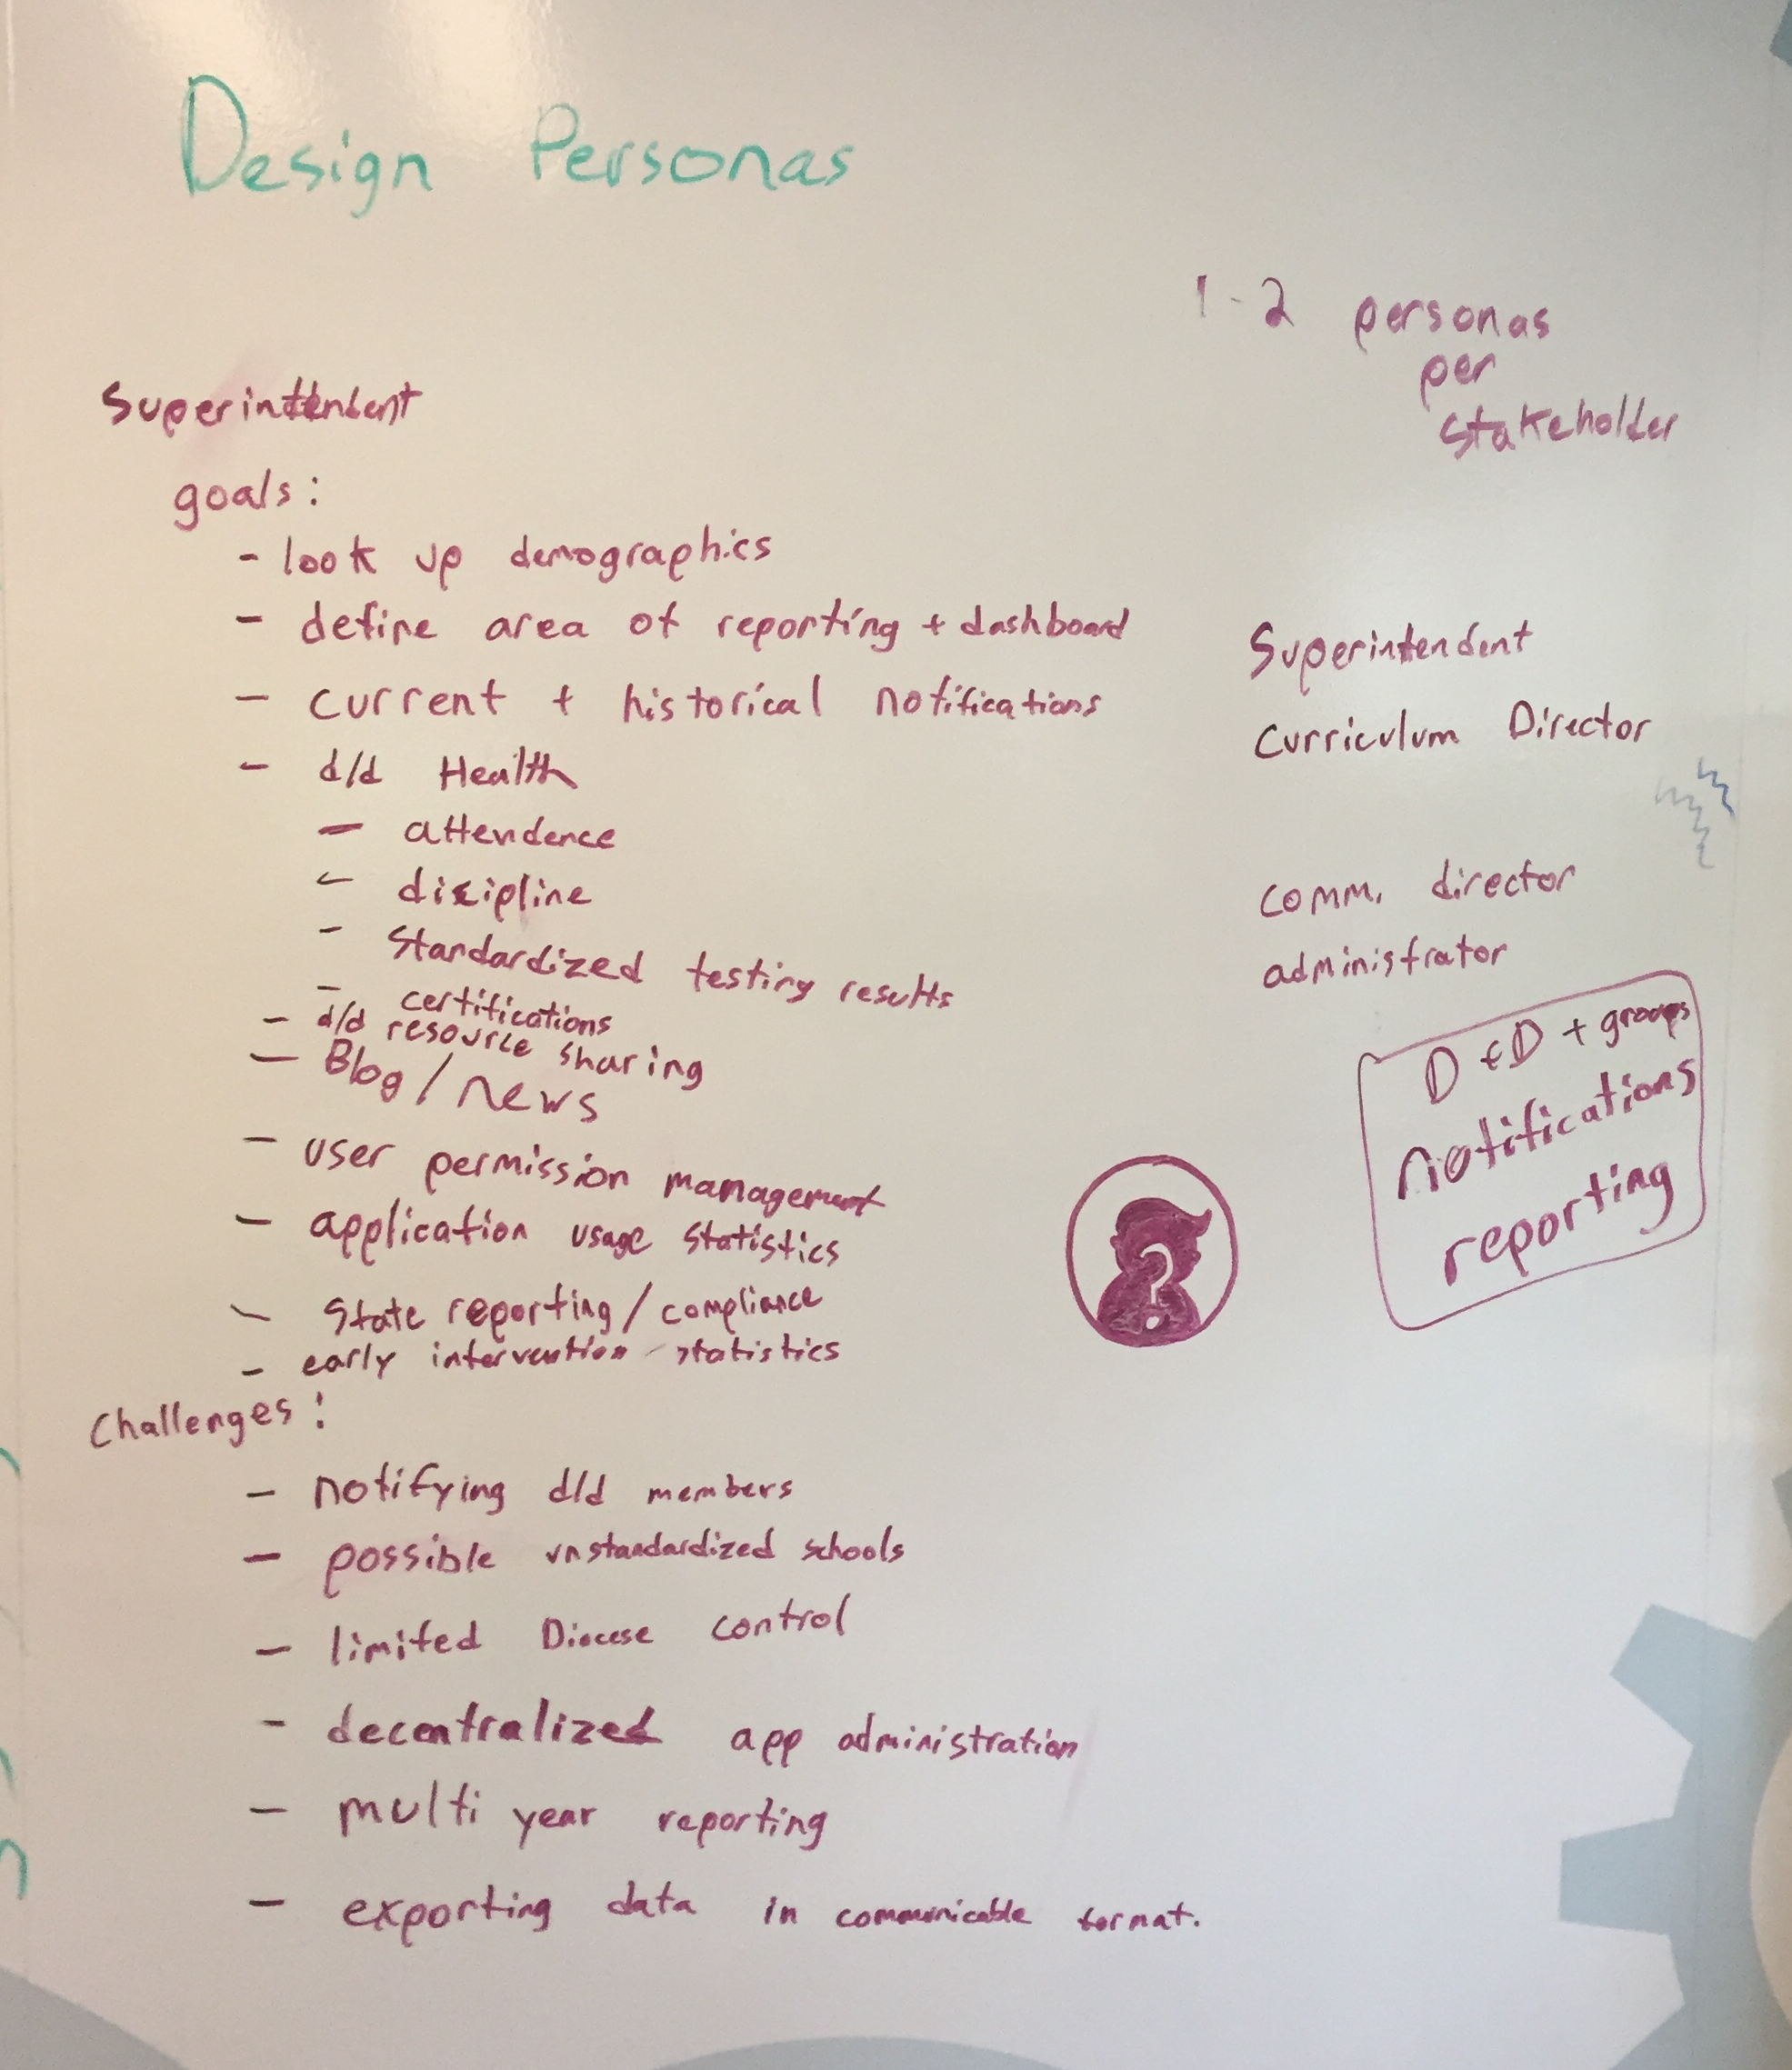 Design Personas
1-2 personas
per
stakeholder
Superintendent
goals:
- look up demographics
- define area of reporting + dashboard
- current + historical notifications
- d/d Health
- attendence
- discipline
- Standardized testing results
- certifications
- d/d resource sharing
- Blog/news
- user permission management
- application usage statistics
- State reporting/compliance
- early intervention statistics
Challenges:
- notifying d/d members
- possible unstandardized schools
- limited Diocese control
- decentralized app administration
- multi year reporting
- exporting data in communicable format.
Superintendent
Curriculum Director
comm. director
administrator
D & D + groups
notifications
reporting
?